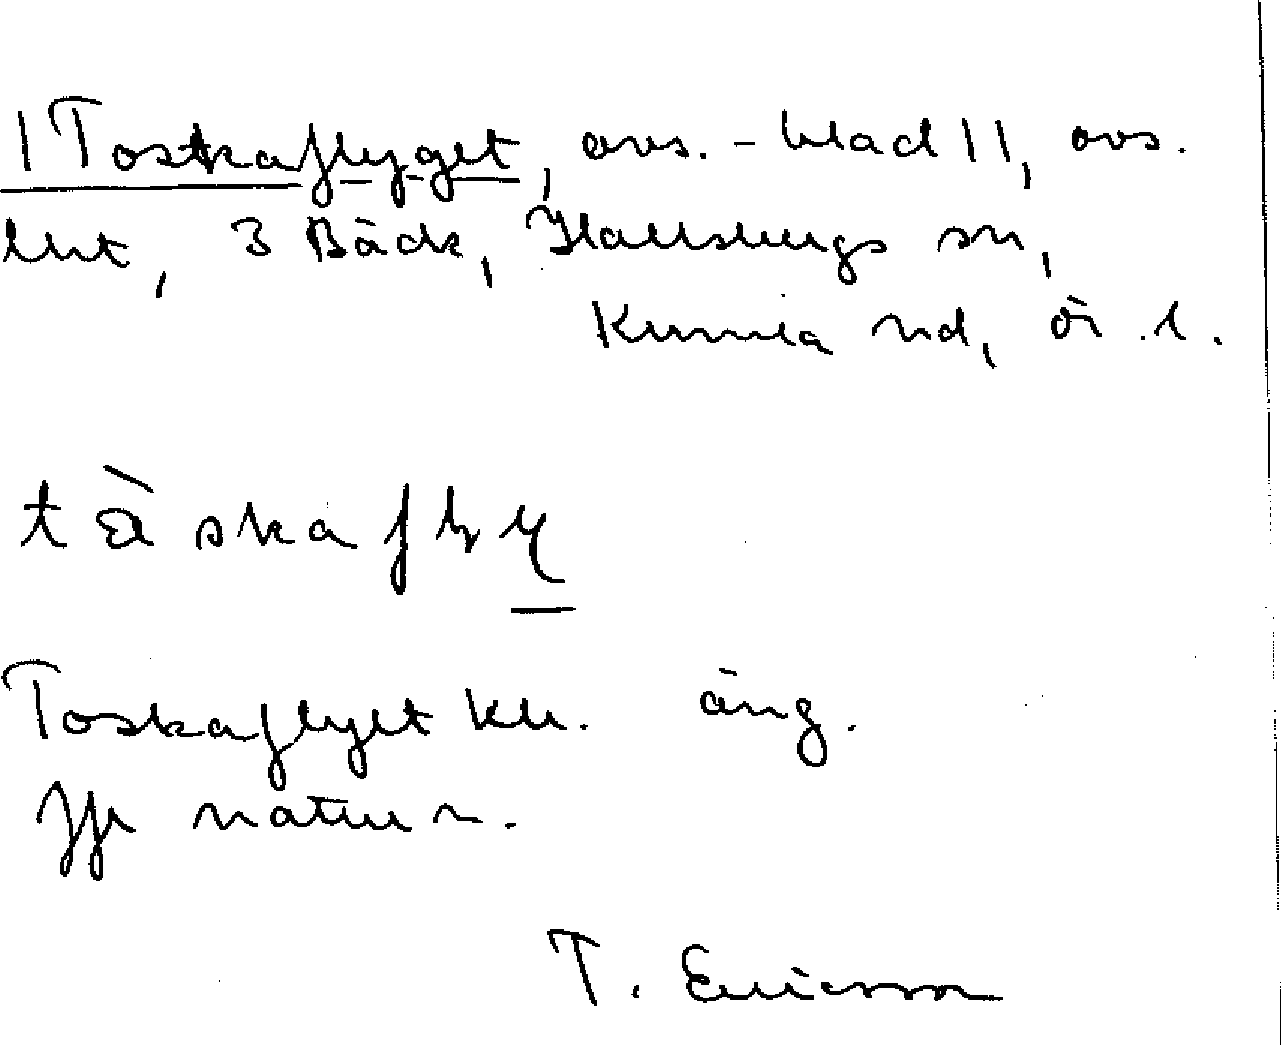 1 Toskaflyget, avs. - blad 11, avs.
lht, 3 Bäck, Hallsbergs sn,
Kumla hd, ör. l.
tå̀skafly
Toskaflyet kk. äng.
Jfr natur n.
T. Ericsson